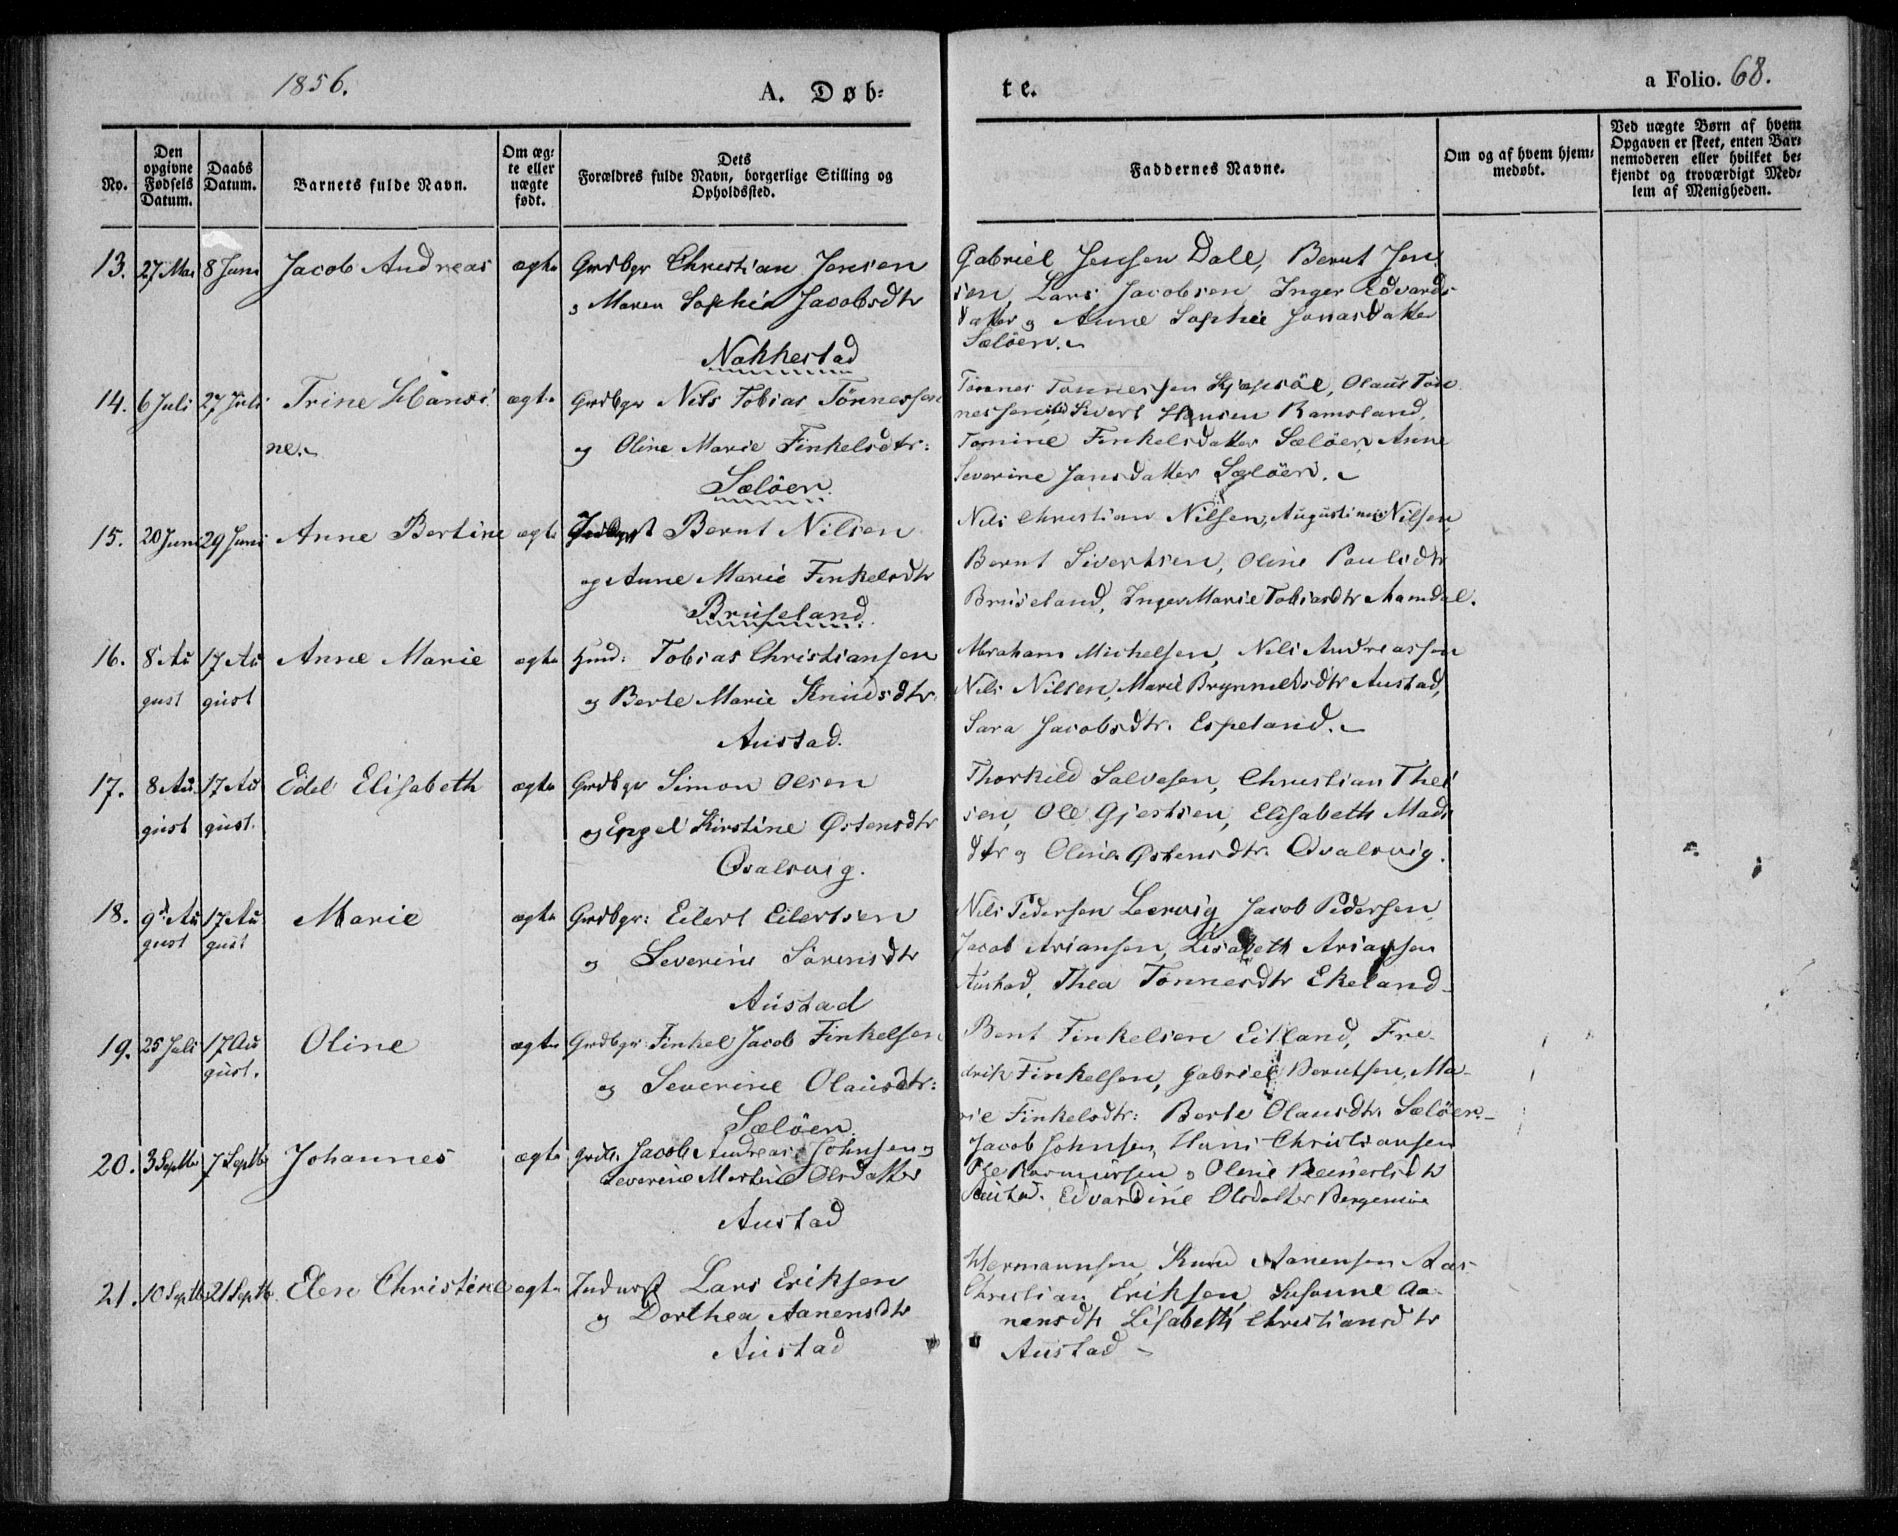 1856.
A. Døb-
te.
a Folio. 68.
No.
Den opgivne Fødsels Datum.
Daabs Datum.
Barnets fulde Navn.
Om æg-
te eller
uægte
født.
Dets
Forældres fulde Navn, borgerlige Stilling og
Opholdssted.
Faddernes Navne.
Om og af hvem hjem-
medøbt.
Ved uægte Børn af hvem
Opgaven er skeet, enten Bar-
nemoderen eller hvilket be-
kjendt og troværdigt Med-
lem af Menigheden.
13. 27 Mai 8 Juni Jacob Andreas ægte Grdbgr Christian Jensen
og Maren Sophia Jacobsdtr
Nakkestad
Gabriel Jensen Dale, Bernt Jen
sen, Lars Jacobsen Inger Edvards-
datter og Anne Sophie Jonasdatter
Sælöen.
14. 6 Juli 27 Juli Trine Hansi
ne. ægte Grdbgr Nils Tobias Tönnessen
og Oline Marie Finkelsdtr:
Sælöen
Tönnes Tönnessen Olaus Tön
nessen, Sivert Hansen Ramsland,
Tomine Finkelsdatter Sælöen, Anne
Severine Jansdatter Sælöen.
15. 20 Juni 29 Juni Anne Bertine ægte Bernt Nilsen
og Anne Marie Finkelsdtr
Bruseland
Nils Christian Nilsen, Augustinus Nilsen
Bernt Sivertsen, Oline Paulsdtr
Bruseland, Inger Marie Tobiasdtr Aamdal.
16. 8 Au
gust 17 Au
gust Anne Marie ægte Tobias Christiansen
og Berte Marie Knudsdtr.
Austad.
Abraham Michelsen, Nils Andreassen
Nils Nilsen, Marie Brynnelsdtr Austad,
Sara Jacobsdtr. Espeland.
17. 8 Au
gust 17 Au
gust. Edel Elisabeth ægte Grdbgr Simon Olsen
og Engel Kirstine Østensdtr
Qvalsvig.
Thorkild Salvesen, Christian Thei
sen, Ole Gjertsen, Elisabeth Mads
dtr og Oline Østensdtr. Qvalsvig.
18. 9d Au
gust 17 Au
gust Marie ægte Grdbgr: Eilert Eilertsen
og Severine Sörensdtr
Austad
Nils Pedersen Lervig Jacob Pedersen
Jacob Ariansen, Lisabeth Ariansen
Austad, Thea Tönnesdtr Ekeland
19. 25 Juli 17 Au
gust. Oline ægte Grdbgr Finkel Jacob Finkelsen
og Severine Olausdtr:
Sælöen.
Bent Finkelsen Eitland, Fre-
drik Finkelsen, Gabriel Berntsen, Ma-
rie Finkelsdtr: Berte Olausdtr. Sælöen
20. 3 Septbr 7 Septbr Johannes ægte Jacob Andreas Johnsen og
Severine Martine Olsdatter
Austad
Jacob Johnsen, Hans Christiansen
Ole Rasmussen og Oline
Austad. Edvardine Olsdatter
21. 10 Septbr 21 Septbr. Elen Christine ægte Inderst Lars Eriksen
og Dorthea Aanensdtr
Austad
Hermannsen, Knud Aanensen Aas
Christian Eriksen, Susanne Aa-
nensdtr Lisabeth Christiansdtr
Austad